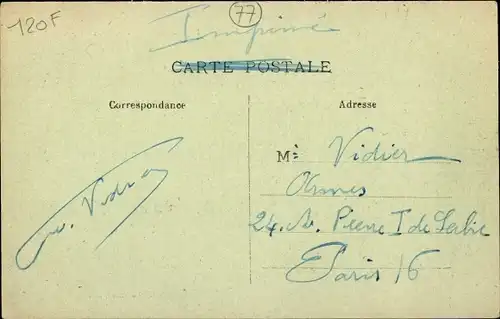 120F
77
Imprimé
CARTE POSTALE
Correspondance
Adresse
M: Vidier
24. Av. Pierre I de Serbie
Paris 16
Vidier